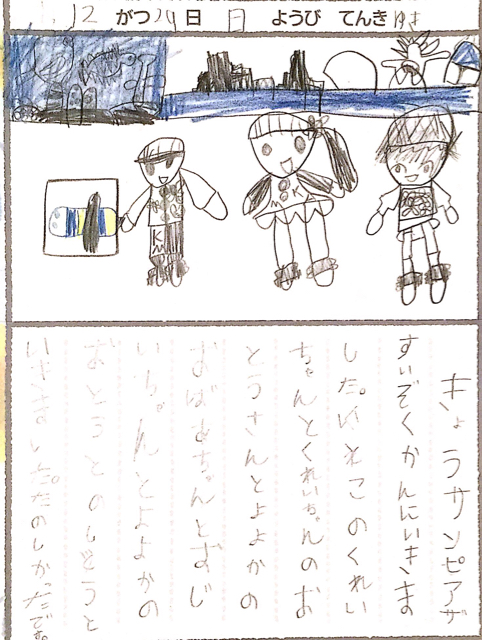 12 がつ 日 日 ようび てんき ゆき
きょうサンピアザ
すいぞくかんにいきま
した。いとこのくれい
ちゃんとくれいちゃんのお
とうさんとよよかの
おばあちゃんとおじ
いちゃんとよよかの
おとうとのしどうと
いきました。たのしかったです。